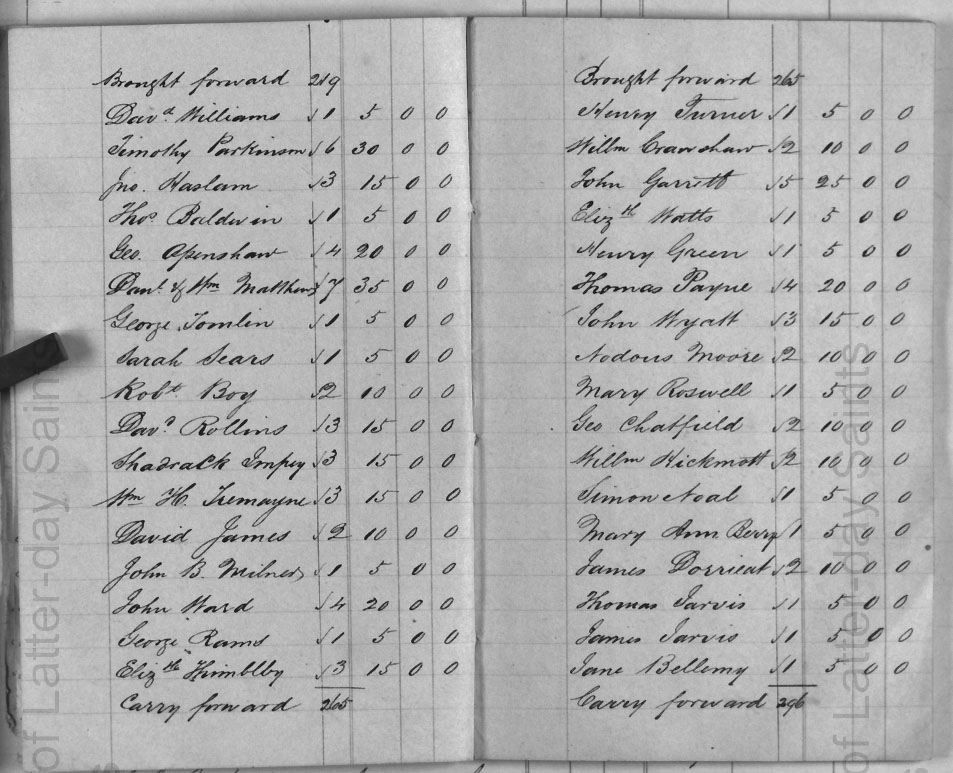 Brought forward 219
Dav.d Williams √1 5 0 0
Timothy Parkinson √6 30 0 0
Jno. Haslam √3 15 0 0
Thos Baldwin √1 5 0 0
Geo. Openshaw √4 20 0 0
Danl. & Wm Matthews √7 35 0 0
George Tomlin √1 5 0 0
Sarah Sears √1 5 0 0
Robt Boy √2 10 0 0
Davd. Rollins √3 15 0 0
Shadrack Impey √3 15 0 0
Wm H. Tremayne √3 15 0 0
David James √2 10 0 0
John B. Milner √1 5 0 0
John Ward √4 20 0 0
George Rams √1 5 0 0
Elizth Himblby √3 15 0 0
Carry forward 265
Brought forward 265
Henry Turner √1 5 0 0
Willm Crawshaw √2 10 0 0
John Garrett √5 25 0 0
Elizth Watts √1 5 0 0
Henry Green √1 5 0 0
Thomas Payne √4 20 0 0
John Wyatt √3 15 0 0
Nodous Moore √2 10 0 0
Mary Roswell √1 5 0 0
Geo Chatfield √2 10 0 0
Willm Hickmott √2 10 0 0
Simon Noal √1 5 0 0
Mary Ann Berry √1 5 0 0
James Dorrieat √2 10 0 0
Thomas Jarvis √1 5 0 0
James Jarvis √1 5 0 0
Jane Bellemy √1 5 0 0
Carry forward 296
of Latter-day Saints
of Latter-day Saints